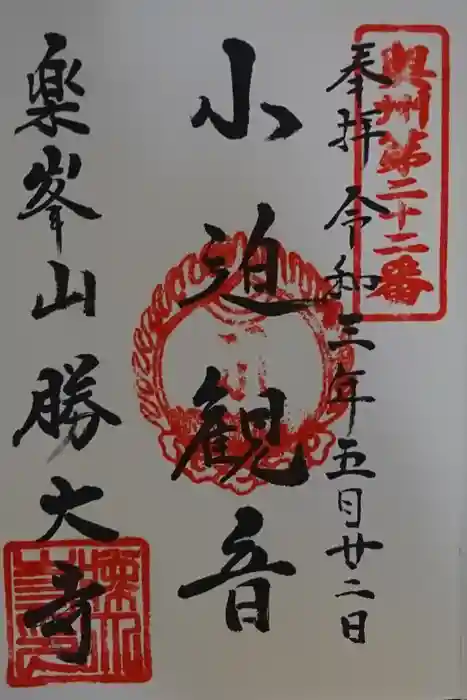 奥州第二十二番
奉拝 令和三年五月廿二日
小迫観音
楽峯山勝大寺